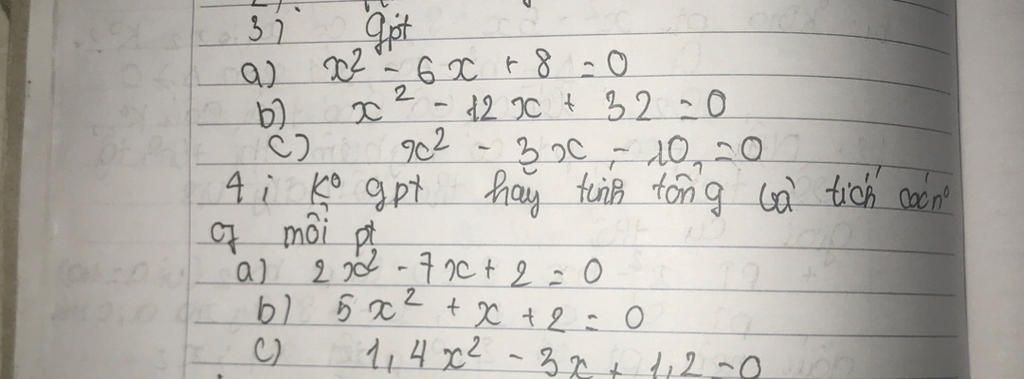 3) Gpt
a) x² - 6x + 8 = 0
b) x² - 12x + 32 = 0
c) x² - 3x - 10 = 0
4; K° gpt hãy tính tổng và tích các n°
of mỗi pt
a) 2x² - 7x + 2 = 0
b) 5x² + x + 2 = 0
c) 1,4x² - 3x + 1,2 = 0